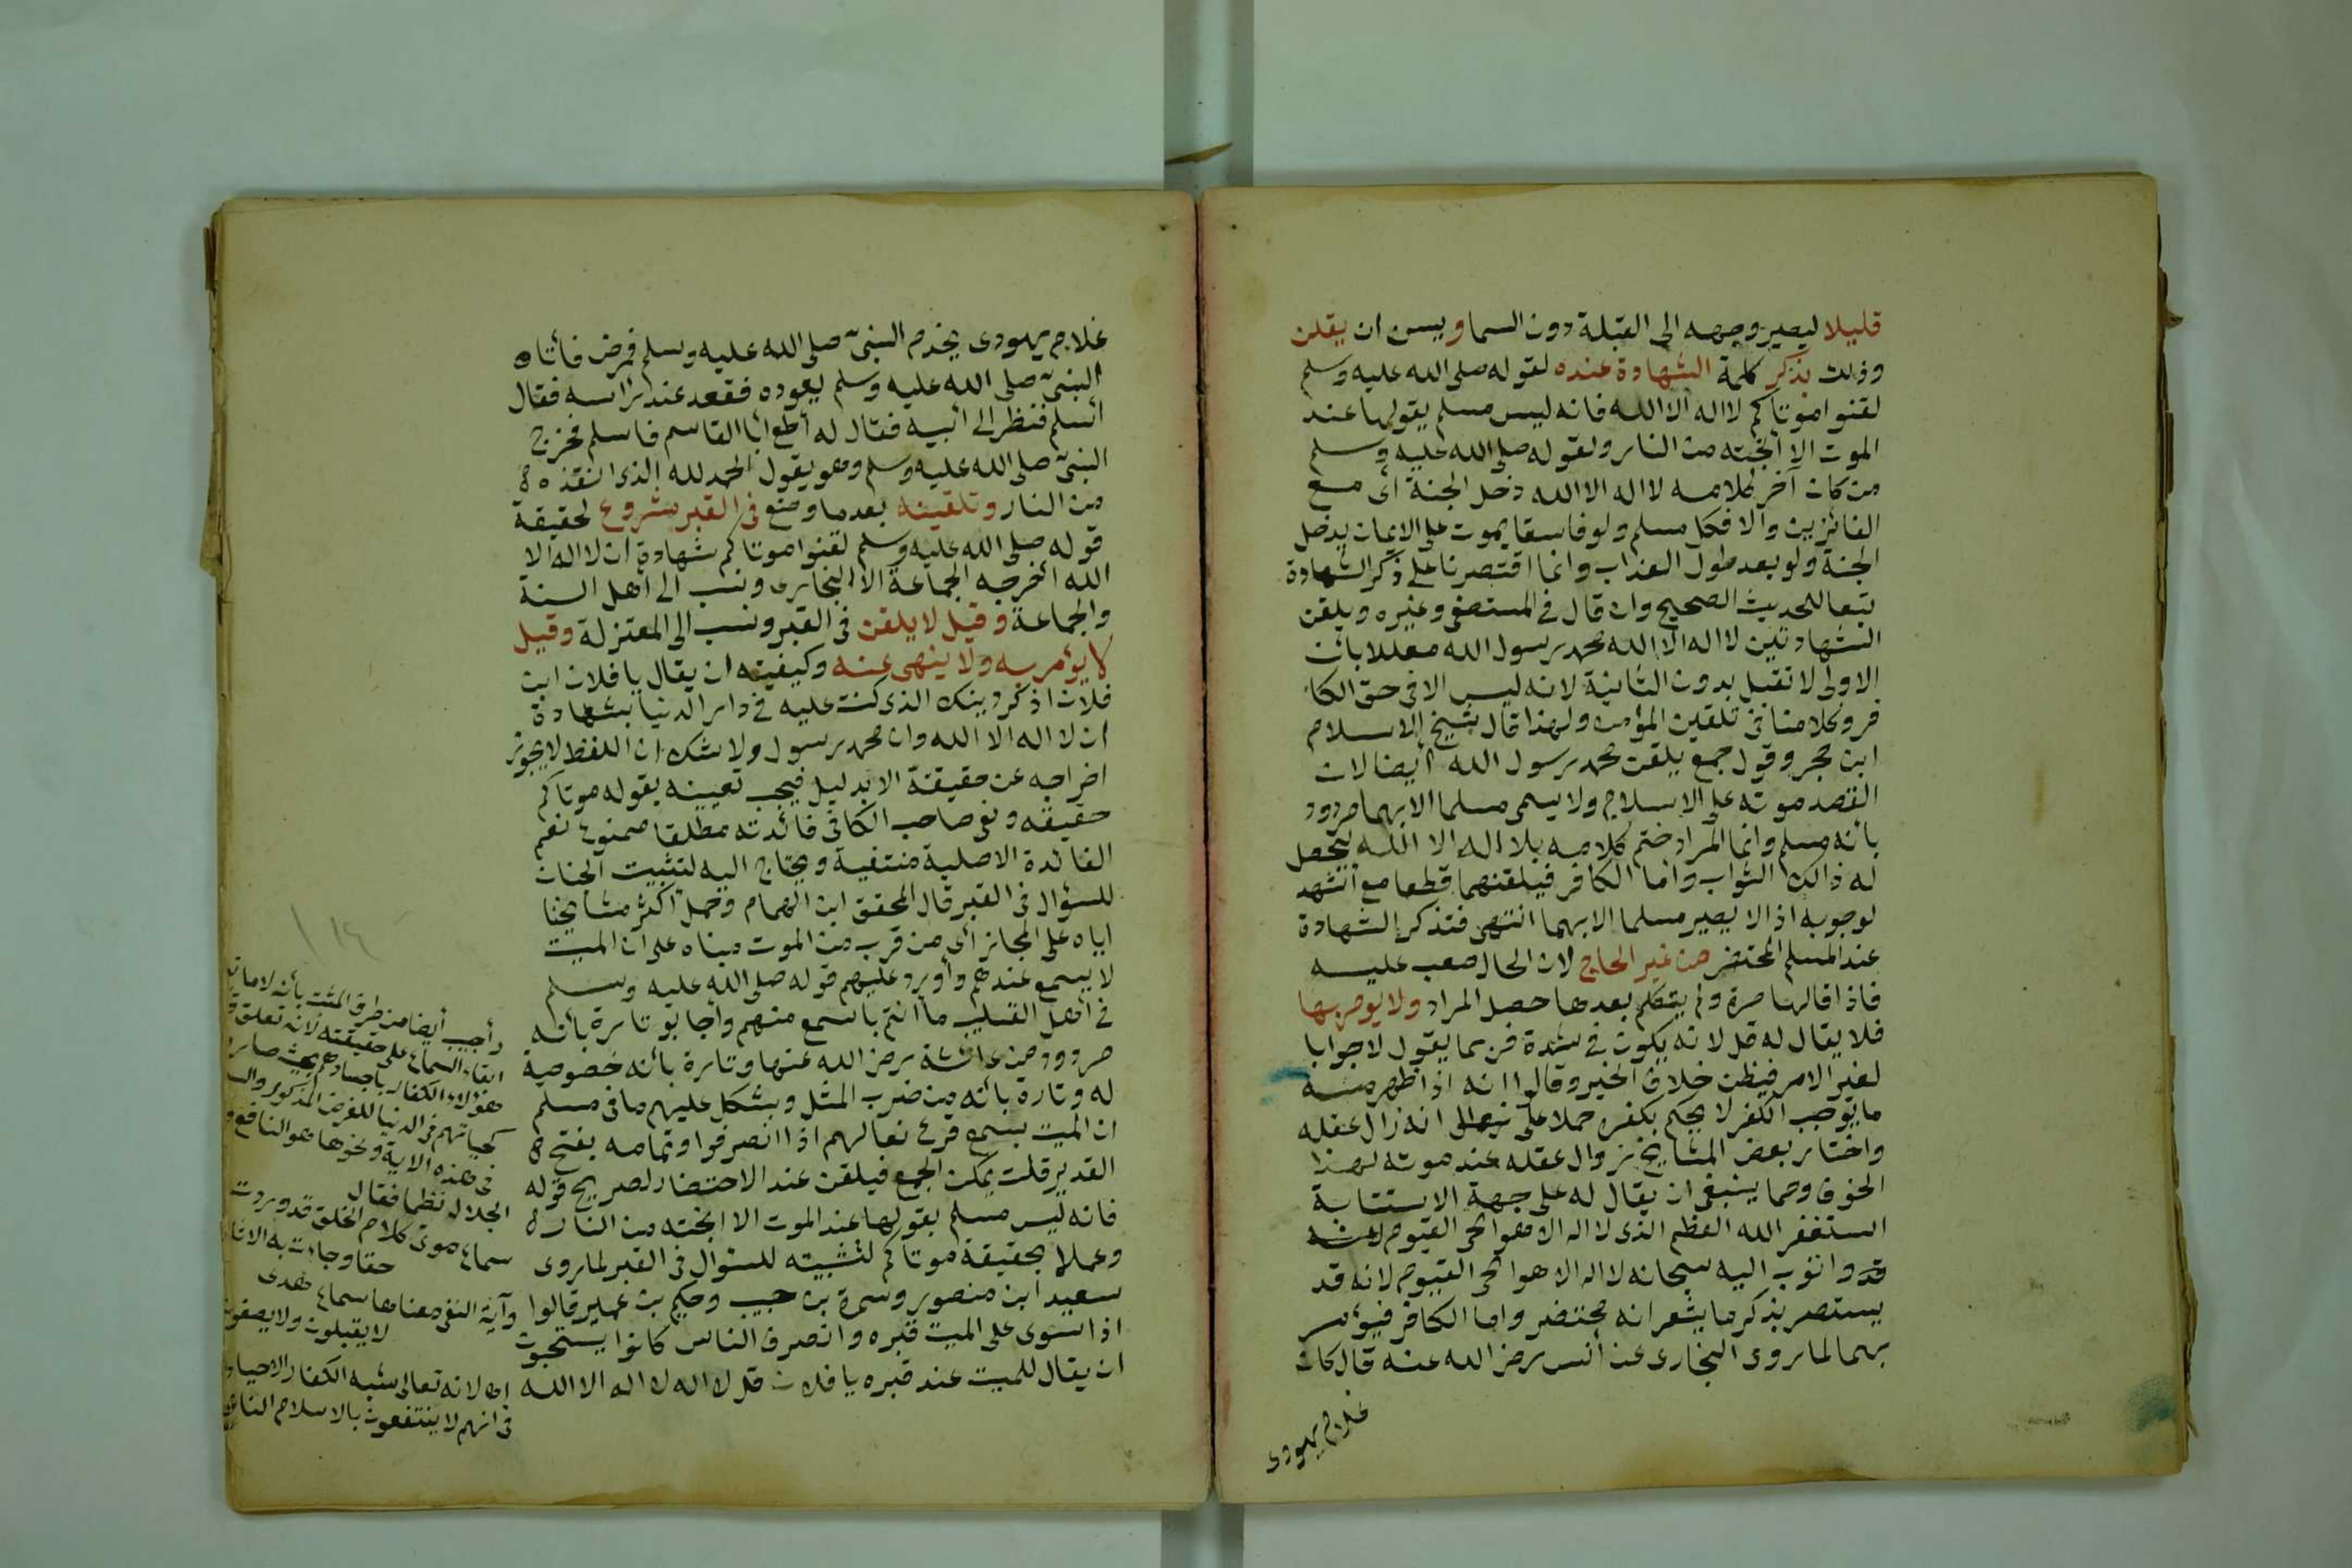 قليلا ليصير وجهه الى القبلة دون السما ويسن ان يقلن
وذلت بذكر كلمة الشهادة عنده لقوله صلى الله عليه وسلم
لقنوا موتاكم لا اله الا الله فانه ليس مسلم يقولها عند
الموت الا انجته من النار ولقوله صلى الله عليه وسلم
من كان آخر كلامه لا اله الا الله دخل الجنة أى مع
الفائزين والا فكل مسلم ولو فاسقا يموت على الايمان يدخل
الجنة ولو بعد طول العذاب وانما اقتصرنا على ذكر الشهادة
تبعا للحديث الصحيح وان قال في المستصفى وغيره ويلقن
الشهادتين لا اله الا الله محمد رسول الله معللا بان
الاولى لا تقبل بدون الثانية لانه ليس الا فى حق الكا
فر وكلامنا فى تلقين المؤمن ولهذا قال شيخ الاسلام
ابن حجر وقول جمع يلقن محمد رسول الله أيضا لان
القصد موته على الاسلام ولا يسمى مسلما الا بهما مردود
بانه مسلم وانما المراد ختم كلامه بلا اله الا الله ليحصل
له ذالك الثواب واما الكافر فيلقنهما قطعا مع أشهد
لوجوبه اذ لا يصير مسلما الا بهما انتهى فتذكر الشهادة
عند المسلم المحتضر من غير الحاح لان الحال صعب عليه
فاذا قالها مرة ولم يتكلم بعدها حصل المراد ولا يومر بها
فلا يقال له قل لانه يكون في شدة فربما يقول لا جوابا
لغير الامر فيظن خلاف الخير وقالوا انه اذا ظهر منه
ما يوجب الكفر لا يحكم بكفره حملا على انه زال عقله
واختار بعض المشايخ زوال عقله عند موته لهذا
الخوف ومما ينبغى ان يقال له على جهة الاستتابة
استغفر الله العظم الذى لا اله الا هو الحى القيوم
واتوب اليه سبحانه لا اله الا هو الحى القيوم لانه قد
يستضر بذكر ما يشعر انه محتضر واما الكافر فيؤمر
بهما لما روى البخارى عن أنس رضى الله عنه قال كان
غلام يهودى
غلام يهودى يخدم النبىّ صلى الله عليه وسلم فمرض فأتاه
النبىّ صلى الله عليه وسلم يعوده فقعد عند رأسه فقال
أسلم فنظر الى أبيه فقال له أطع أبا القاسم فاسلم فخرج
النبىّ صلى الله عليه وسلم وهو يقول الحمد لله الذى انقذه
من النار وتلقينه بعد ما وضع فى القبر مشروع لحقيقة
قوله صلى الله عليه وسلم لقنوا موتاكم شهادة ان لا اله الا
الله أخرجه الجماعة الا البخارى ونسب الى أهل السنة
والجماعة وقيل لا يلقن فى القبر ونسب الى المعتزلة وقيل
لا يؤمر به ولا ينهى عنه وكيفيته ان يقال يا فلان ابن
فلان اذكر دينك الذى كنت عليه في دار الدنيا بشهادة
ان لا اله الا الله وان محمد رسول ولا شك ان اللفظ لا يجوز
اخراجه عن حقيقتة الا بدليل فيجب تعيينه بقوله موتاكم
حقيقه ونفى صاحب الكافى فائدته مطلقا ممنوع نعم
الفائدة الاصلية منتفية ويحتاج اليه لتثبيت الجنان
للسؤال فى القبر قال المحقق ابن الهمام وحمل أكثر مشايخنا
اياه على المجاز أى من قرب من الموت مبناه على ان الميت
لا يسمع عندهم وأورد عليهم قوله صلى الله عليه وسلم
فى أهل القليب ما أنتم باسمع منهم وأجابو تارة بأنه
مردود من عائشة رضى الله عنها وتارة بأنه خصوصية
له وتارة بأنه من ضرب المثل ويشكل عليهم ما فى مسلم
ان الميت يسمع قرع نعالهم اذا انصرفوا وتمامه بفتح
القدير قلت يمكن الجمع فيلقن عند الاحتضار لصريح قوله
فانه ليس مسلم يقولها عند الموت الا انجته من النار
وعملا بحقيقة موتاكم لتثبيته للسؤال فى القبر لما روى
سعيد ابن منصور وسمرة بن حبيب وحكيم بن عمير قالوا
اذا سوى على الميت قبره وانصرف الناس كانوا يستحبون
ان يقال للميت عند قبره يا فلان قل لا اله لا اله الا الله
١١٤
وأجيب أيضا من طرق المثبت بأنه لا مات
ابقاء السماع على حقيقته لانه تعلق
هؤلاء الكفار باجسادهم بحيث صار
كحياتهم فى الدنيا للغرض المذكور وال
فى هذه الاية ونحوها هو النافع
الجلال نظما فقال
سماع موتى كلام الخلق قد وردت
حقا وجاءت به الاثا
وآية النفى معناها سماع هدى
لا يقبلون ولا يصغون
لانه تعالى شبه الكفار الاحياء
فى انهم لا ينتفعون بالاسلام النافع